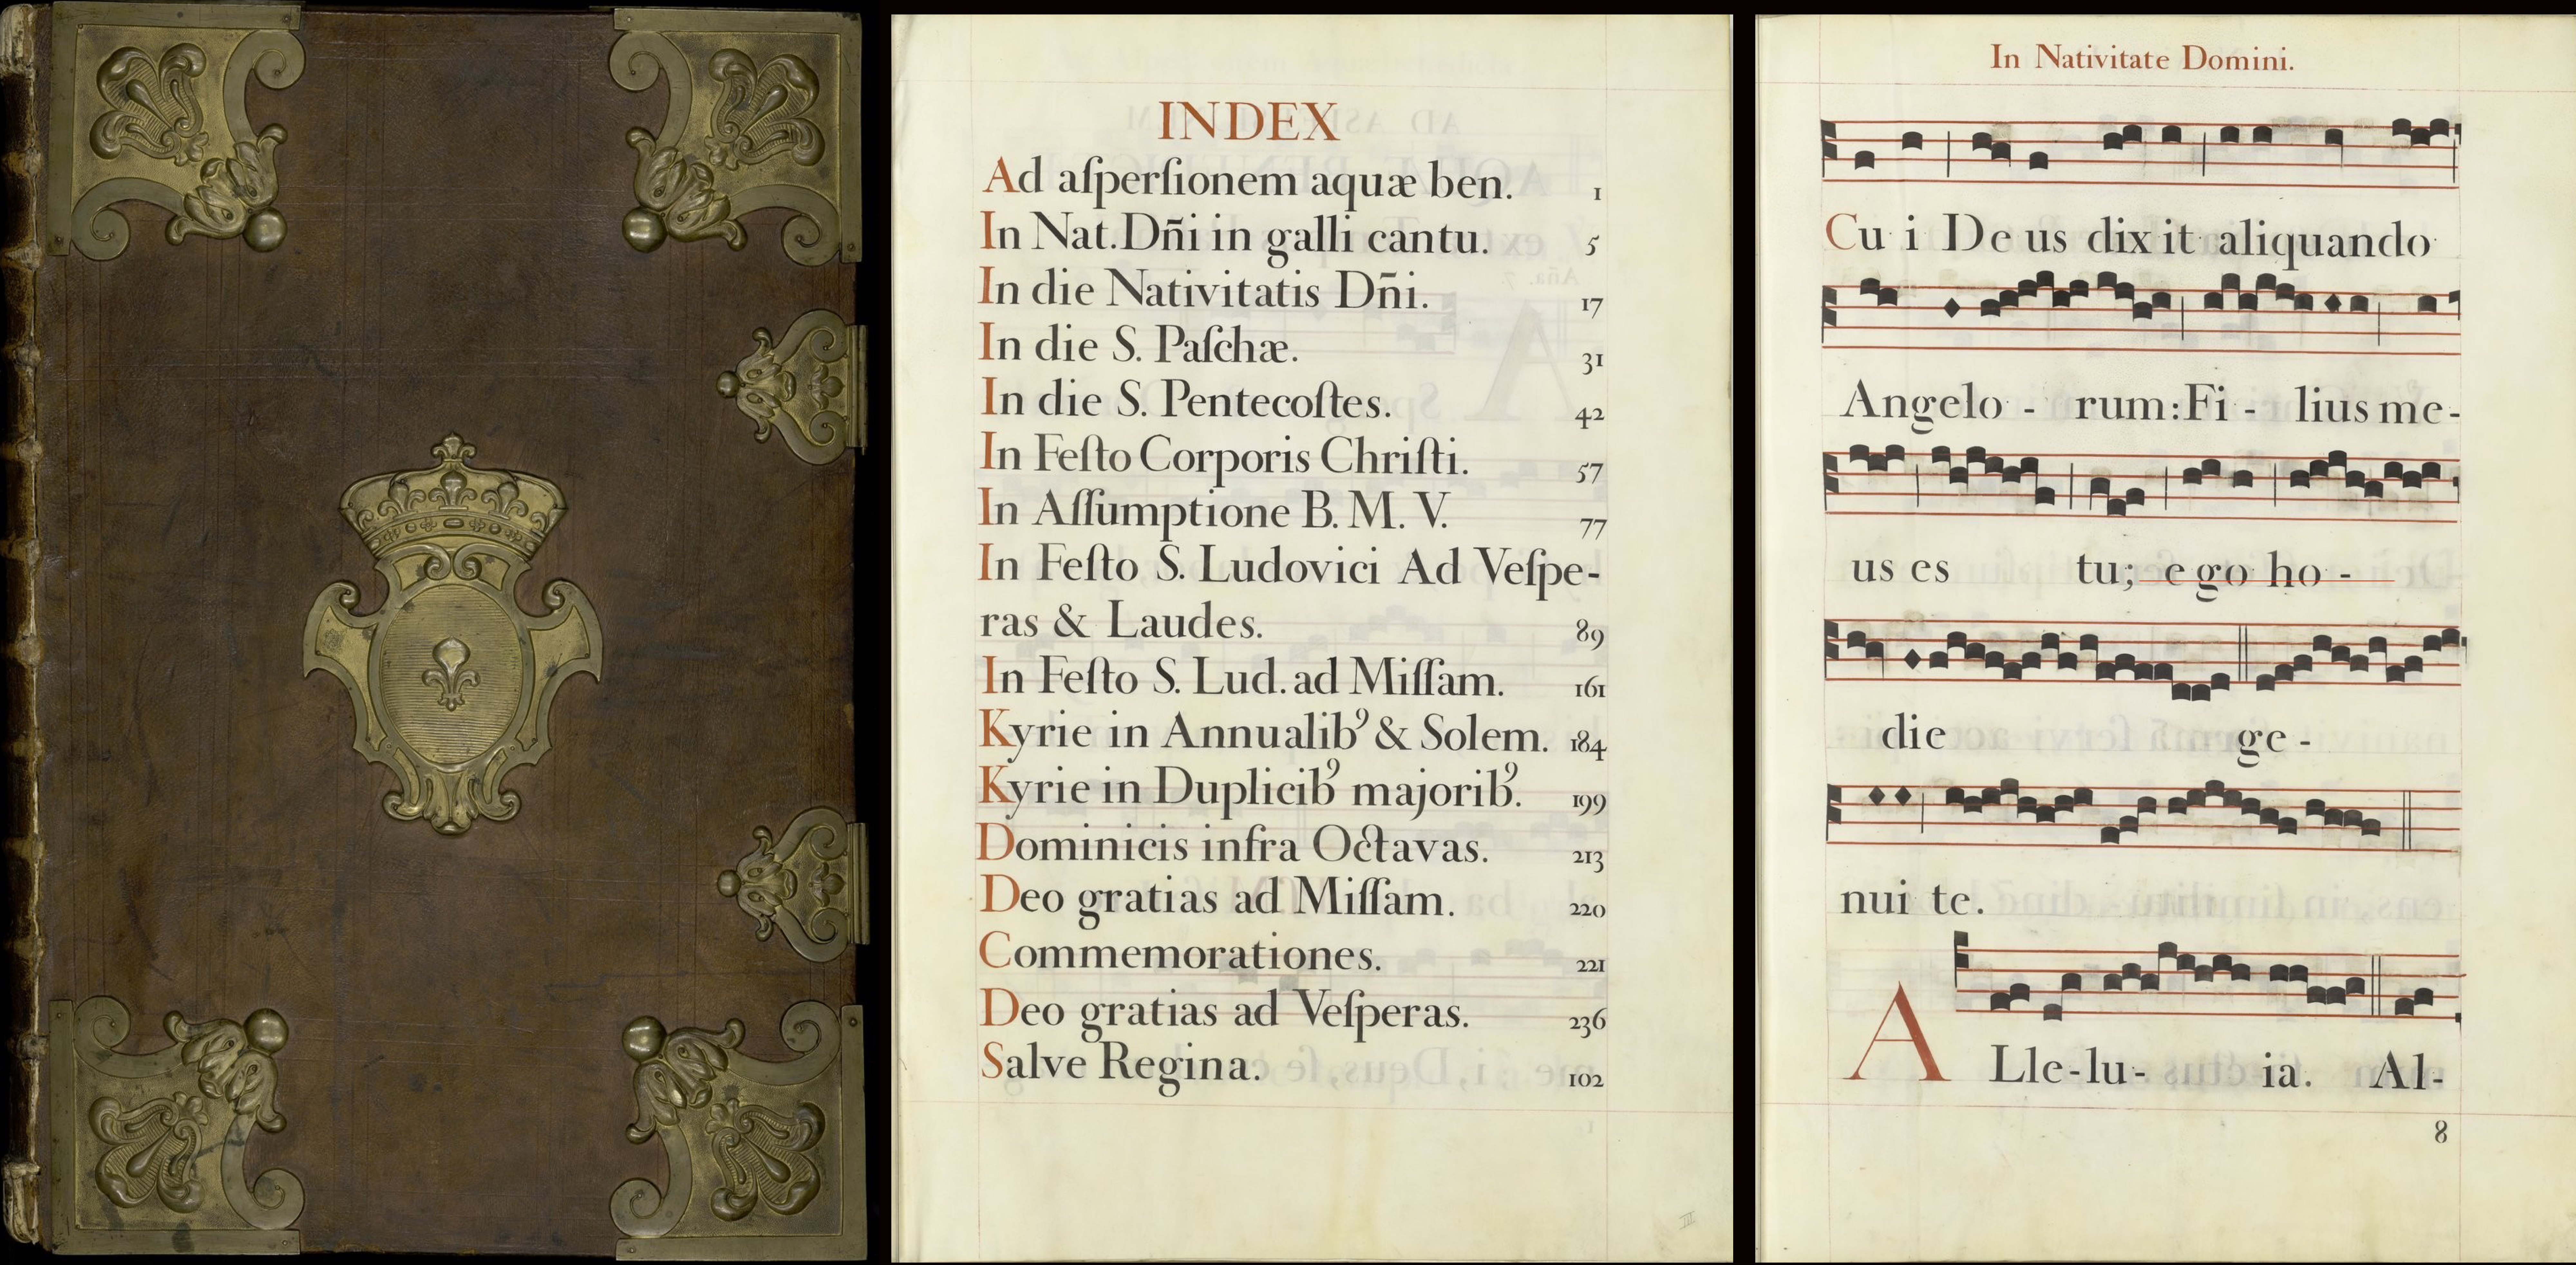 INDEX
Ad aſperſionem aquæ ben. 1
In Nat. Dñi in galli cantu. 5
In die Nativitatis Dñi. 17
In die S. Paſchæ. 31
In die S. Pentecoſtes. 42
In Feſto Corporis Chriſti. 57
In Aſſumptione B. M. V. 77
In Feſto S. Ludovici Ad Veſpe-
ras & Laudes. 89
In Feſto S. Lud. ad Miſſam. 161
Kyrie in Annualibꝰ & Solem. 184
Kyrie in Duplicibꝰ majoribꝰ. 199
Dominicis infra Octavas. 213
Deo gratias ad Miſſam. 220
Commemorationes. 221
Deo gratias ad Veſperas. 236
Salve Regina. 102
III
In Nativitate Domini.
Cu i De us dix it aliquando
Angelo - rum: Fi - lius me-
us es tu; e go ho -
die ge -
nui te.
A Lle-lu- ia. Al-
8